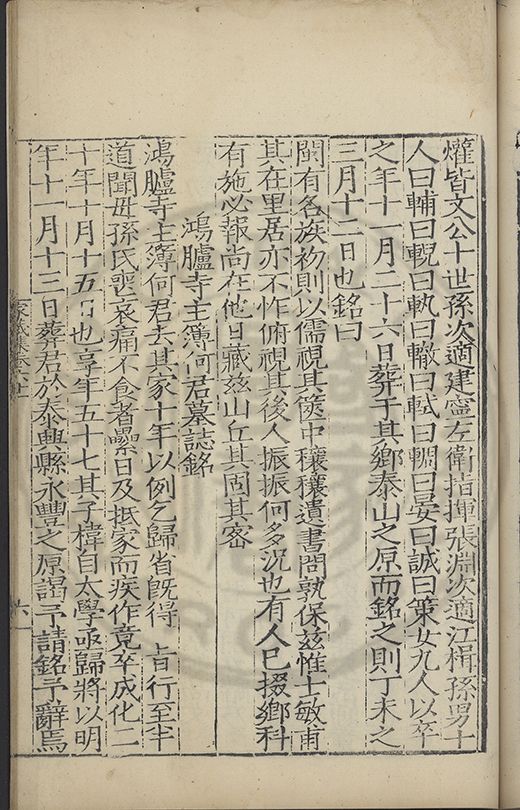 爟皆文公十世孫次適建寧左衛指揮張淵次適江楫孫男十
人曰輔曰輗曰執曰轍曰軾曰輖曰晏曰誠曰策女九人以卒
之年十一月二十六日葬于其鄉泰山之原而銘之則丁未之
三月十二日也銘曰
閩有名族初則以儒視其篋中穰穰遺書閣孰保茲惟士敏甫
其在里居亦不怍俯視其後人振振何多況也有人已掇鄉科
有施必報尚在他日藏茲山丘其固其密
鴻臚寺主簿何君墓誌銘
鴻臚寺主簿何君去其家十年以例乞歸省旣得 旨行至半
道聞毋孫氏喪哀痛不食者纍日及抵家而疾作竟卒成化二
十年十月十五日也享年五十七其子樟自太學亟歸將以明
年十一月十三日葬君於泰興縣永豐之原謁予請銘予辭焉
家藏集卷 六